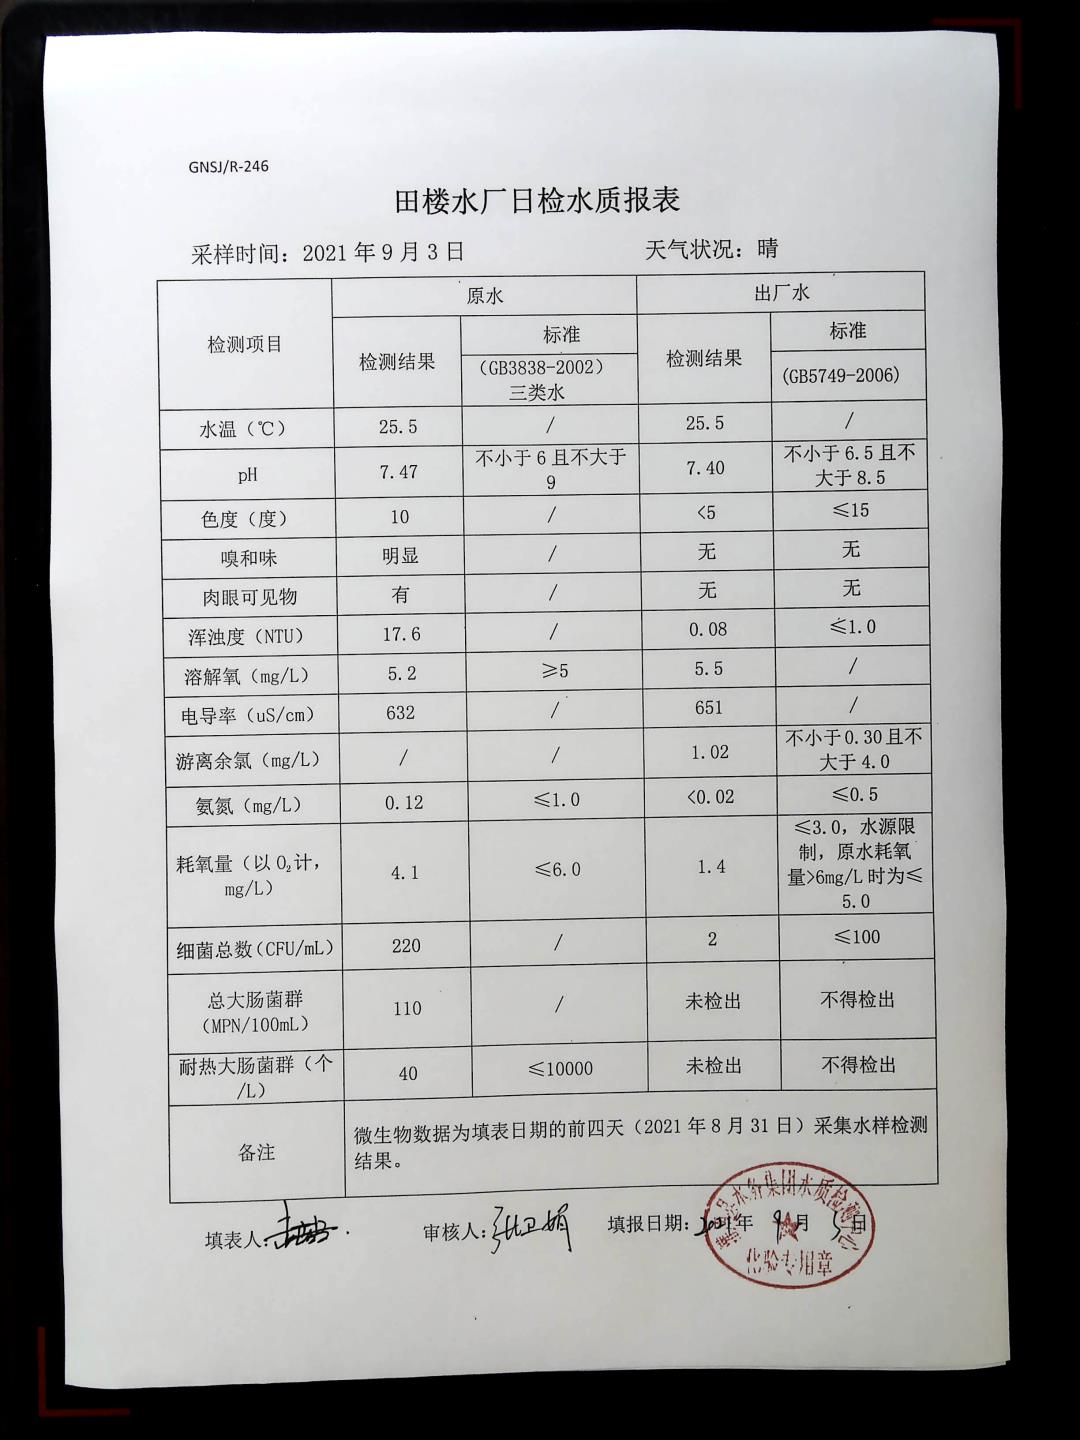 GNSJ/R-246
田楼水厂日检水质报表
采样时间：2021 年 9 月 3 日 天气状况：晴
检测项目 原水 出厂水
检测结果 标准 检测结果 标准
（GB3838-2002） (GB5749-2006)
三类水
水温（℃） 25.5 / 25.5 /
pH 7.47 不小于 6 且不大于 7.40 不小于 6.5 且不
9 大于 8.5
色度（度） 10 / <5 ≤15
嗅和味 明显 / 无 无
肉眼可见物 有 / 无 无
浑浊度（NTU） 17.6 / 0.08 ≤1.0
溶解氧（mg/L） 5.2 ≥5 5.5 /
电导率（uS/cm） 632 / 651 /
游离余氯（mg/L） / / 1.02 不小于 0.30 且不
大于 4.0
氨氮（mg/L） 0.12 ≤1.0 <0.02 ≤0.5
耗氧量（以 O₂计， 4.1 ≤6.0 1.4 ≤3.0，水源限
mg/L） 制，原水耗氧
量>6mg/L 时为≤
5.0
细菌总数（CFU/mL） 220 / 2 ≤100
总大肠菌群 110 / 未检出 不得检出
（MPN/100mL）
耐热大肠菌群（个 40 ≤10000 未检出 不得检出
/L）
备注 微生物数据为填表日期的前四天（2021 年 8 月 31 日）采集水样检测
结果。
填表人: 审核人:张卫娟 填报日期:2021年 9月 5日
水务集团水质检测中心
化验专用章